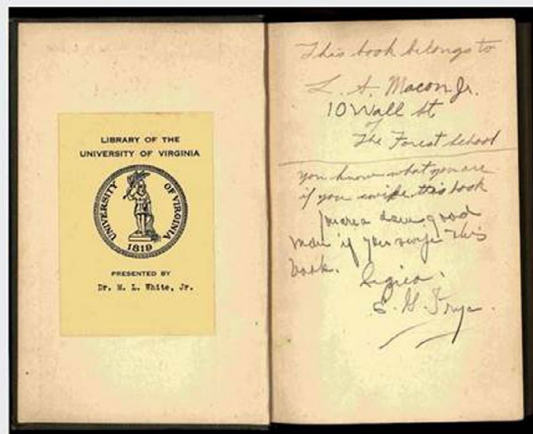 LIBRARY OF THE
UNIVERSITY OF VIRGINIA
UNIVERSITY OF VIRGINIA
1819
PRESENTED BY
Dr. H. L. White, Jr.
This book belongs to
L. A. Macon Jr.
10 Wall St
of
The Forest School
you know what you are
if you swipe this book
a good
man if you swipe this
book.
E. G.